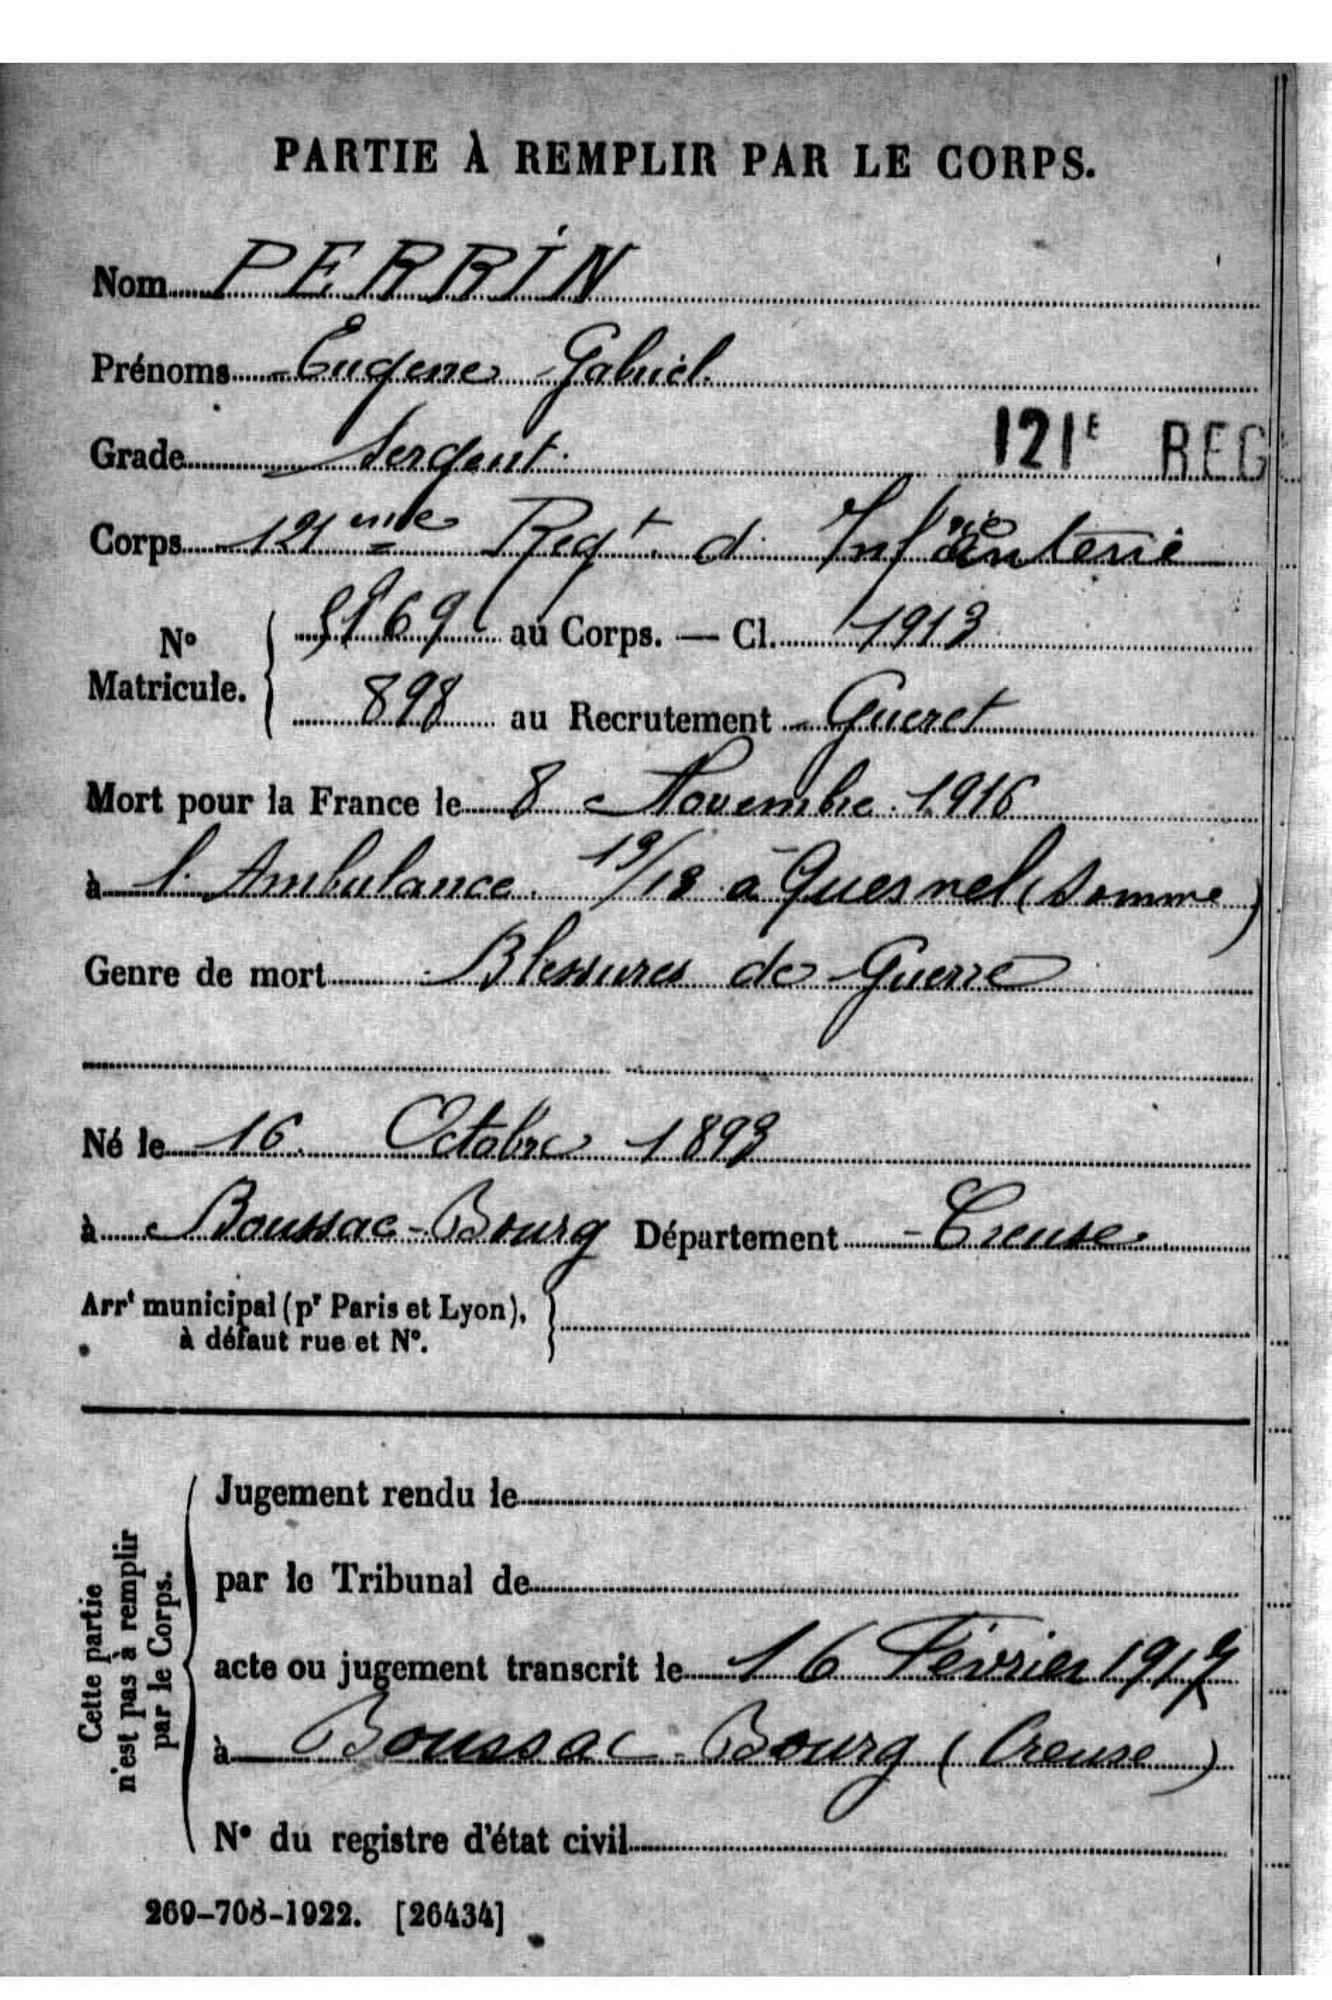 PARTIE À REMPLIR PAR LE CORPS.
Nom PERRIN
Prénoms Eugene Gabriel
Grade Sergent. 121E REG
Corps 121me Regt d' Infanterie
No Matricule. { 5869 au Corps. — Cl. 1913
898 au Recrutement Gueret
Mort pour la France le 8 Novembre 1916
à l'Ambulance 19/18 à Quesnel (Somme)
Genre de mort Blessures de Guerre
Né le 16 Octobre 1893
à Boussac-Bourg Département Creuse
Arrt municipal (pr Paris et Lyon),
à défaut rue et No.
Cette partie
n'est pas à remplir
par le Corps.
Jugement rendu le
par le Tribunal de
acte ou jugement transcrit le 16 Février 1917
à Boussac Bourg (Creuse)
No du registre d'état civil
269-708-1922. [26434]